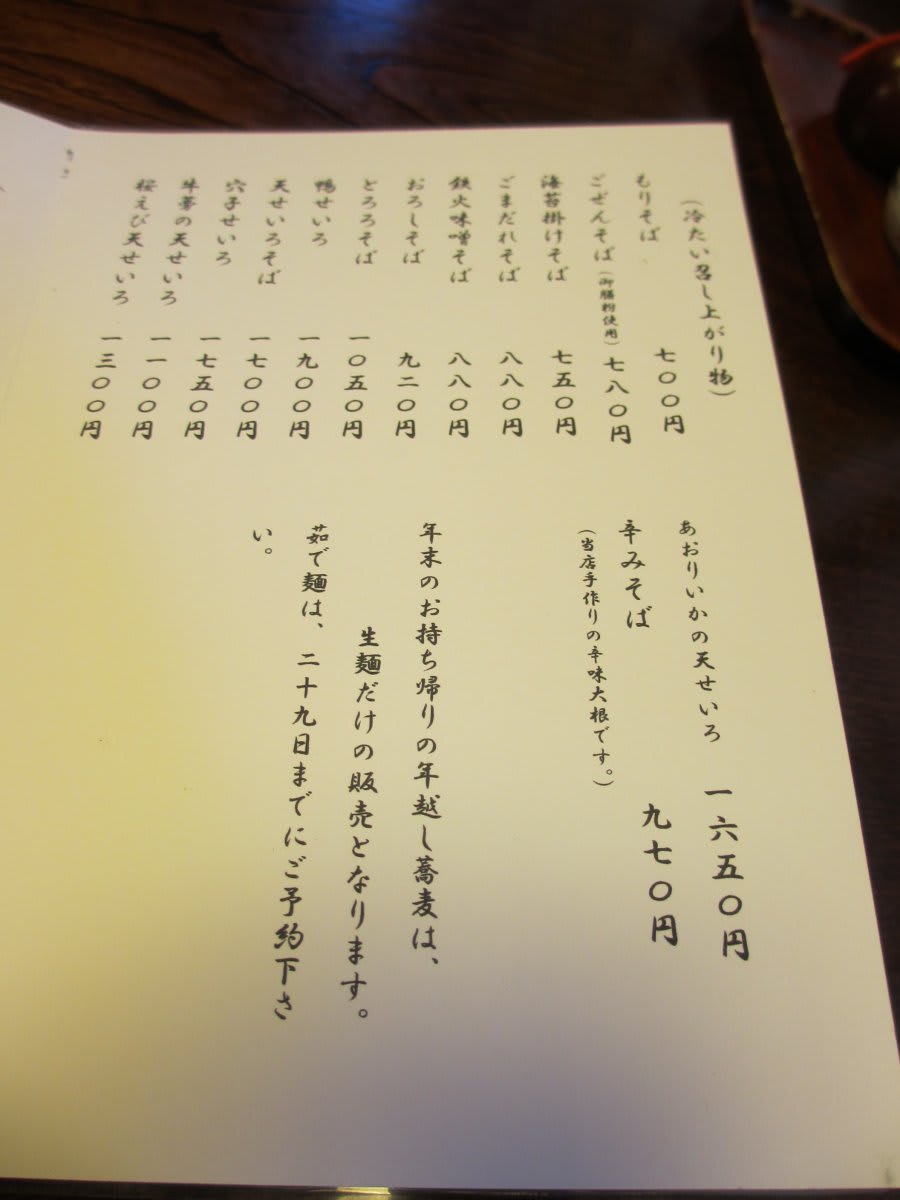 (冷たい召し上がり物)
もりそば 七〇〇円
ごぜんそば(御膳粉使用) 七八〇円
海苔掛けそば 七五〇円
ごまだれそば 八八〇円
鉄火味噌そば 八八〇円
おろしそば 九二〇円
とろろそば 一〇五〇円
鴨せいろ 一九〇〇円
天せいろそば 一七〇〇円
穴子せいろ 一七五〇円
牛蒡の天せいろ 一一〇〇円
桜えび天せいろ 一三〇〇円
あおりいかの天せいろ 一六五〇円
辛みそば 九七〇円
(当店手作りの辛味大根です。)
年末のお持ち帰りの年越し蕎麦は、
生麺だけの販売となります。
茹で麺は、二十九日までにご予約下さ
い。